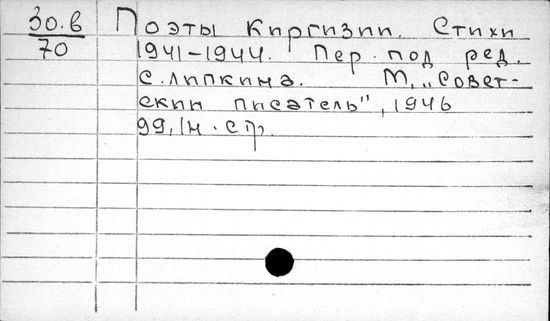 30.в
70
Поэты Киргизии. Стихи
1941-1944. Пер. под ред.
С. Липкина. М, „Совет-
ский писатель", 1946
99, 1н. стр.